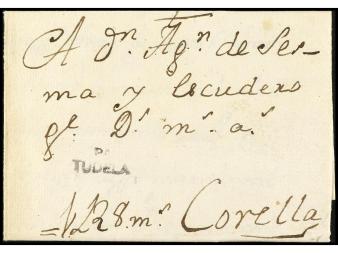 A Dn. Agn. de Ser=
ma y Escudero
ge. Ds. ms. as.
TUDELA
Corella